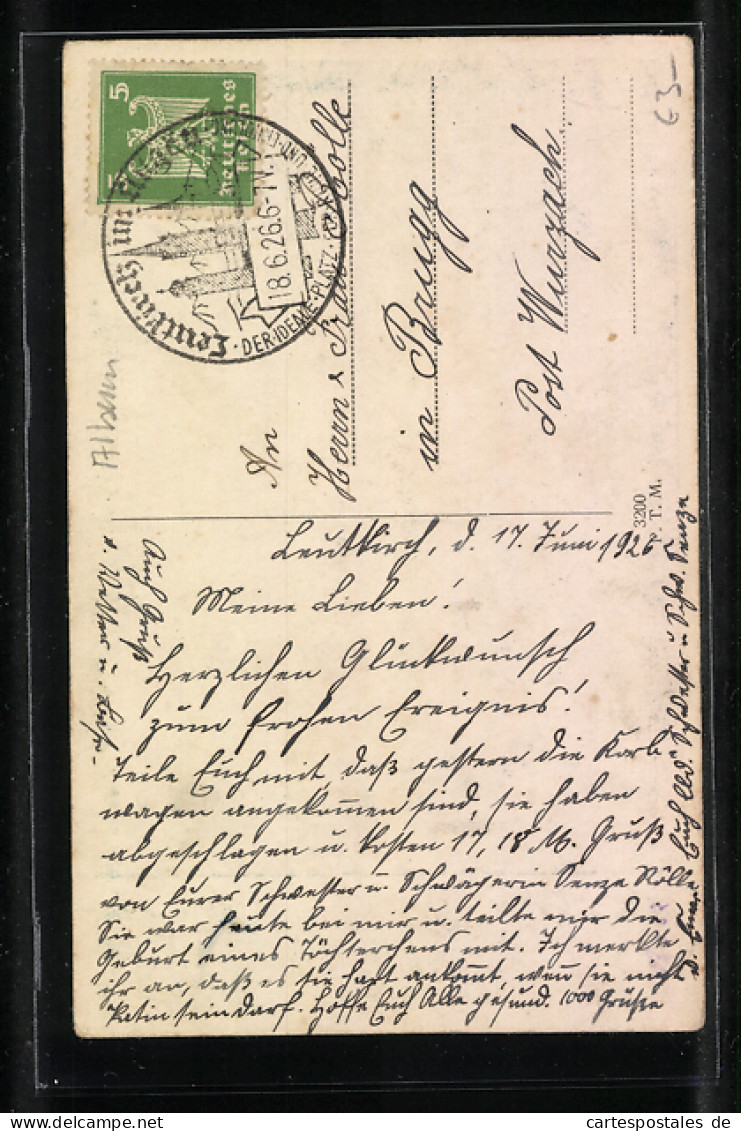 63-
5
5
Deutsches
Reich
Leutkirch im Allgäu
18.6.26.6-7V.
DER IDEALE PLATZ
Allgäu
An
Herrn & Frau Nolle
in Brugg
Post Wurzach.
3200
T. M.
Leutkirch, d. 17. Juni 1926
Meine Lieben!
Herzlichen Glückwunsch
zum frohen Ereignis!
Teile Euch mit, daß gestern die Korb
wagen angekommen sind, sie haben
abgeschlagen u. kosten 17, 18 M. Gruß
von Eurer Schwester u. Schwägerin Senza Nölle
Sie war heute bei mir u. teilte mir die
Geburt eines Töchterchens mit. Ich merkte
ihr an, daß es sie hart ankommt, wenn sie nicht
Patin sein darf. Hoffe Euch Alle gesund. 1000 Grüße
v. Eurer Euch lbd. Schwester u. Schw. Senza
Auch Gruß
v. Vetter u.
cartespostales de
cartespostales.de